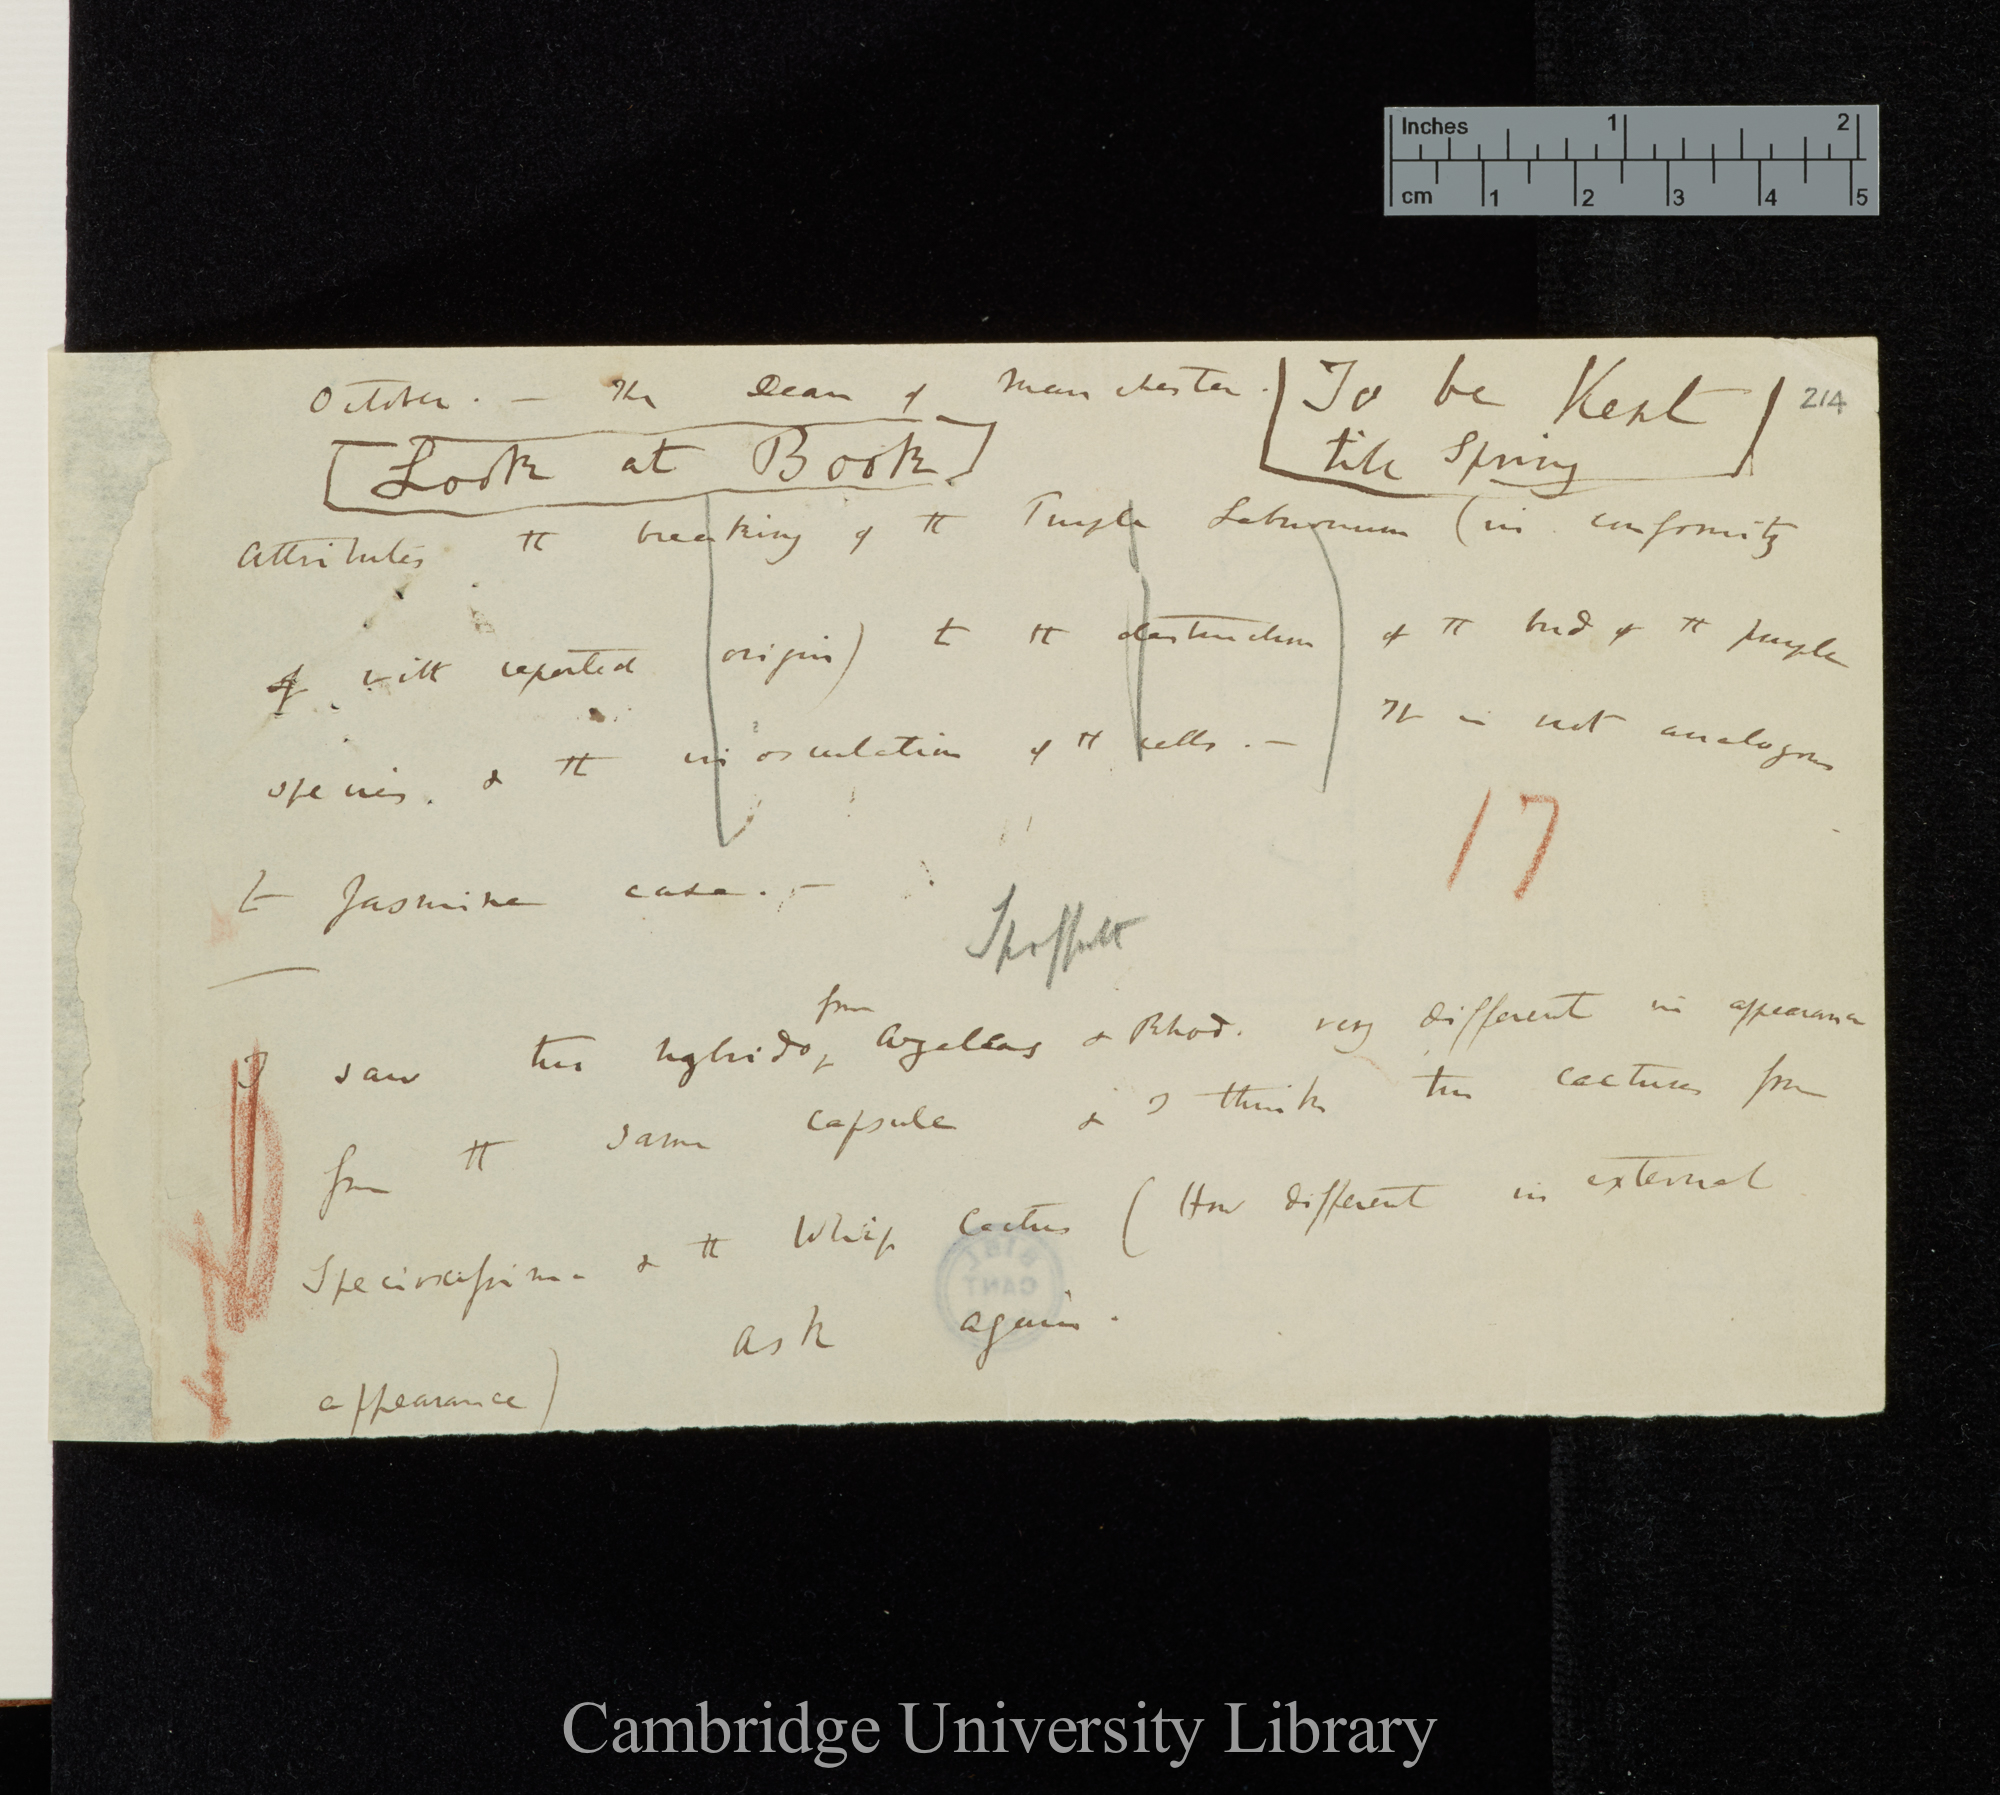 Inches 1 2
cm 1 2 3 4 5
October. — The Dean of Manchester. [To be Kept 214
[Look at Book] till Spring]
attributes the breaking of the Purple Laburnum (in conformity
of with reported origin) to the destruction of the bud of the purple
species. & the inosculation of the cells. — It is not analogous
17
to Jasmine case. —
I saw two hybrids, from Azaleas & Rhod. very different in appearance
from the same capsule & I think two cactuses from
Speciosissima & the Whip Cactus (How different in external
ask again.
appearance)
Cambridge University Library